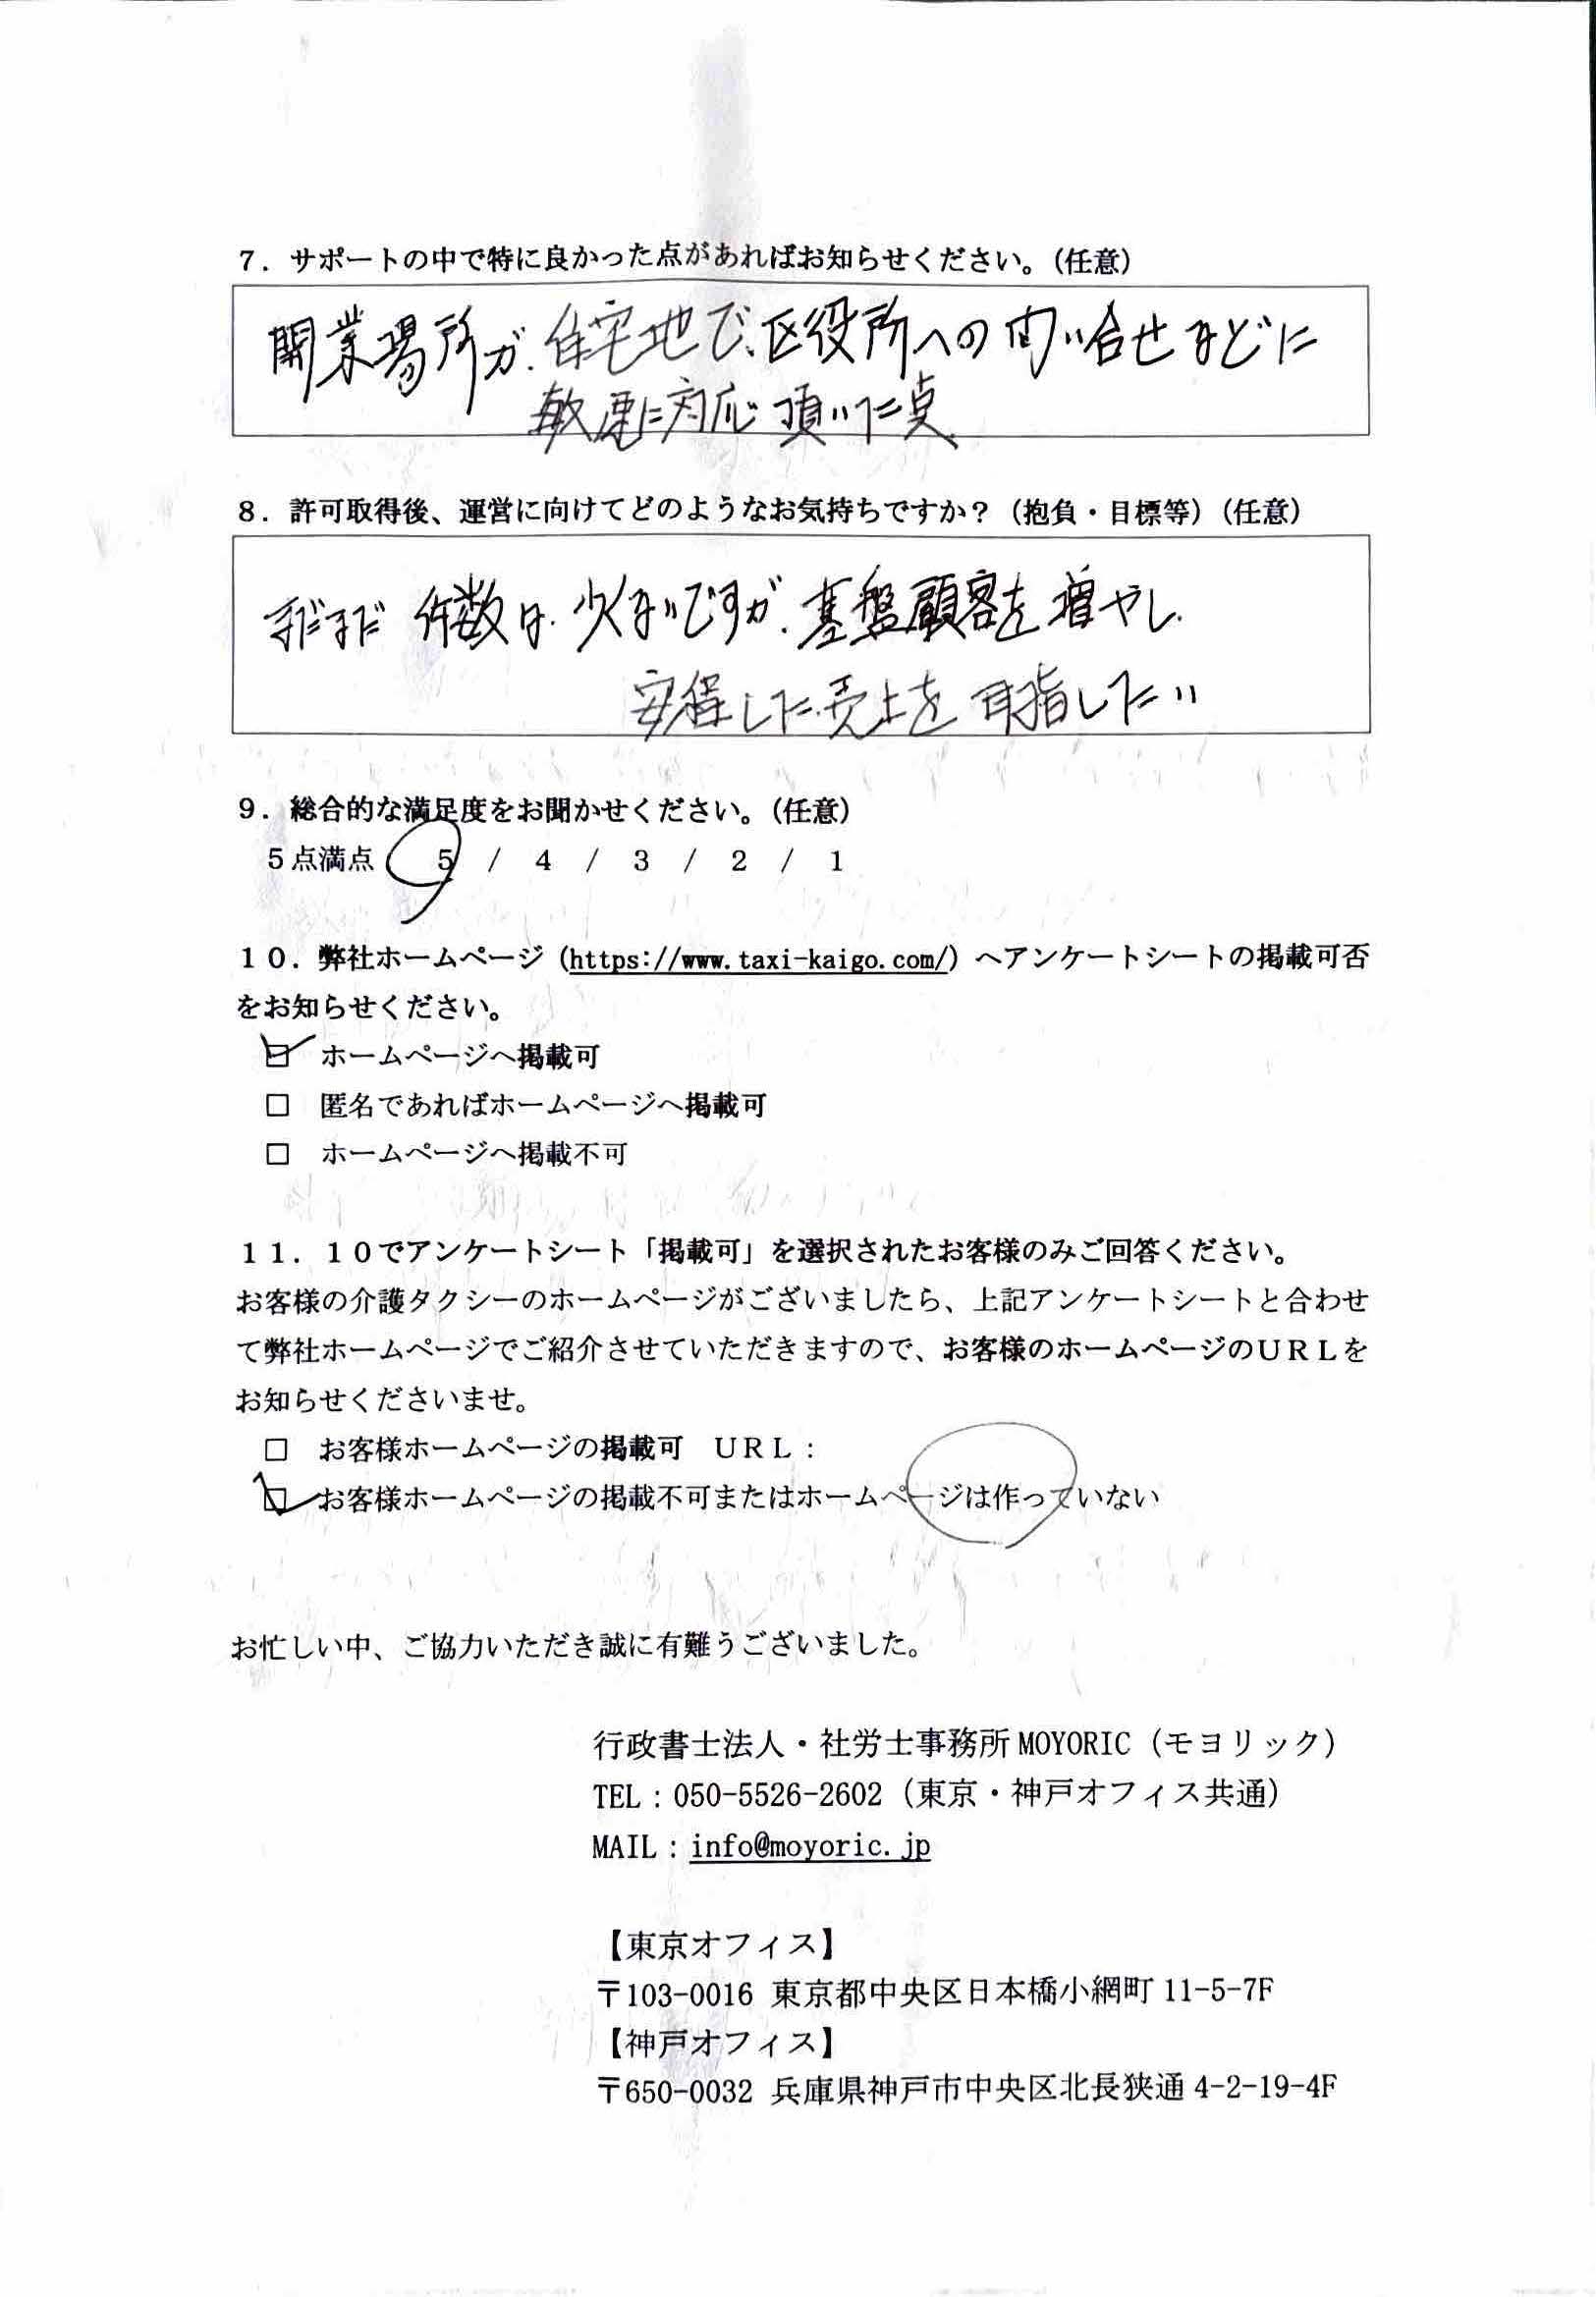 7．サポートの中で特に良かった点があればお知らせください。（任意）
開業場所が、住宅地で、区役所への問い合せなどに
敏速に対応頂いた点、
8．許可取得後、運営に向けてどのようなお気持ちですか？（抱負・目標等）（任意）
まだまだ件数は、少くないですが、基盤顧客を増やし、
安程した売上を目指したい
9．総合的な満足度をお聞かせください。（任意）
5点満点　5　/　4　/　3　/　2　/　1
１０．弊社ホームページ（https://www.taxi-kaigo.com/）へアンケートシートの掲載可否
をお知らせください。
☑　ホームページへ掲載可
□　匿名であればホームページへ掲載可
□　ホームページへ掲載不可
１１．１０でアンケートシート「掲載可」を選択されたお客様のみご回答ください。
お客様の介護タクシーのホームページがございましたら、上記アンケートシートと合わせ
て弊社ホームページでご紹介させていただきますので、お客様のホームページのＵＲＬを
お知らせくださいませ。
□　お客様ホームページの掲載可　ＵＲＬ：
☑　お客様ホームページの掲載不可またはホームページは作っていない
お忙しい中、ご協力いただき誠に有難うございました。
行政書士法人・社労士事務所 MOYORIC（モヨリック）
TEL：050-5526-2602（東京・神戸オフィス共通）
MAIL：info@moyoric.jp
【東京オフィス】
〒103-0016 東京都中央区日本橋小網町 11-5-7F
【神戸オフィス】
〒650-0032 兵庫県神戸市中央区北長狭通 4-2-19-4F